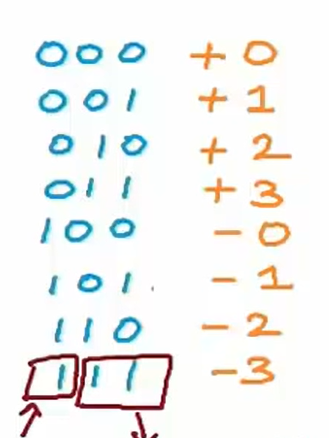 000 +0
001 +1
010 +2
011 +3
100 -0
101 -1
110 -2
111 -3